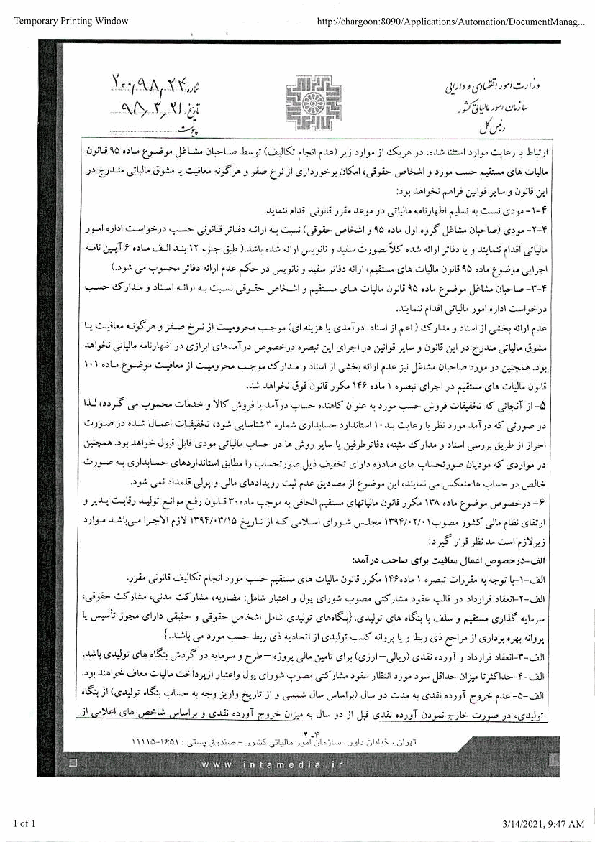 Temporary Printing Window
http://chargoon:8090/Applications/Automation/DocumentManag...
وزارت امور اقتصادی و دارایی
سازمان امور مالیاتی کشور
رئیس کل
شماره: ۲۰۰/۹۸/۲۴
تاریخ: ۹۸/۳/۲۱
پیوست:
ارتباط با رعایت موارد استثنا شده، در هریک از موارد زیر (عدم انجام تکالیف) توسط صاحبان مشاغل موضوع ماده ۹۵ قانون
مالیات های مستقیم حسب مورد و اشخاص حقوقی، امکان برخورداری از نرخ صفر و هرگونه معافیت یا مشوق مالیاتی مندرج در
این قانون و سایر قوانین فراهم نخواهد بود:
۴-۱- مودی نسبت به تسلیم اظهارنامه مالیاتی در موعد مقرر قانونی اقدام ننماید.
۴-۲- مودی (صاحبان مشاغل گروه اول ماده ۹۵ و اشخاص حقوقی) نسبت به ارائه دفاتر قانونی حسب درخواست اداره امور
مالیاتی اقدام ننمایند و یا دفاتر ارائه شده کلاً بصورت سفید و نانویس ارائه شده باشد.( طبق جزء ۱۲ بند الف ماده ۶ آیین نامه
اجرایی موضوع ماده ۹۵ قانون مالیات های مستقیم، ارائه دفاتر سفید و نانویس در حکم عدم ارائه دفاتر محسوب می شود.)
۴-۳- صاحبان مشاغل موضوع ماده ۹۵ قانون مالیات های مستقیم و اشخاص حقوقی نسبت به ارائه اسناد و مدارک حسب
درخواست اداره امور مالیاتی اقدام ننمایند.
عدم ارائه بخشی از اسناد و مدارک ( اعم از اسناد درآمدی یا هزینه ای) موجب محرومیت از نرخ صفر و هرگونه معافیت یا
مشوق مالیاتی مندرج در این قانون و سایر قوانین در اجرای این تبصره درخصوص درآمدهای ابرازی در اظهارنامه مالیاتی نخواهد
بود. همچنین در مورد صاحبان مشاغل نیز عدم ارائه بخشی از اسناد و مدارک موجب محرومیت از معافیت موضوع ماده ۱۰۱
قانون مالیات های مستقیم در اجرای تبصره ۱ ماده ۱۴۶ مکرر قانون فوق نخواهد شد.
۵- از آنجائی که تخفیفات فروش حسب مورد به عنوان کاهنده حساب درآمد یا فروش کالا و خدمات محسوب می گردد، لذا
در صورتی که درآمد مورد نظر با رعایت بند ۱۰ استاندارد حسابداری شماره ۳ شناسایی شود، تخفیفات اعمال شده در صورت
احراز از طریق بررسی اسناد و مدارک مثبته، دفاتر طرفین یا سایر روش ها در حساب مالیاتی مودی قابل قبول خواهد بود. همچنین
در مواردی که مودیان صورتحساب های صادره دارای تخفیف ذیل صورتحساب را مطابق استانداردهای حسابداری به صورت
خالص در حساب ها منعکس می نمایند، این موضوع از مصادیق عدم ثبت رویدادهای مالی و پولی قلمداد نمی شود.
۶- درخصوص موضوع ماده ۱۳۸ مکرر قانون مالیاتهای مستقیم الحاقی به موجب ماده ۳۰ قانون رفع موانع تولید رقابت پذیر و
ارتقای نظام مالی کشور مصوب ۱۳۹۴/۰۲/۰۱ مجلس شورای اسلامی که از تاریخ ۱۳۹۴/۰۳/۱۵ لازم الاجرا می‌باشد موارد
زیر لازم است مد نظر قرار گیرد:
الف-درخصوص اعمال معافیت برای صاحب درآمد:
الف-۱-با توجه به مقررات تبصره ۱ ماده ۱۴۶ مکرر قانون مالیات های مستقیم حسب مورد انجام تکالیف قانونی مقرر.
الف-۲-انعقاد قرارداد در قالب عقود مشارکتی مصوب شورای پول و اعتبار شامل: مضاربه، مشارکت مدنی، مشارکت حقوقی،
سرمایه گذاری مستقیم و سلف با بنگاه های تولیدی.(بنگاههای تولیدی شامل اشخاص حقوقی و حقیقی دارای مجوز تأسیس یا
پروانه بهره برداری از مراجع ذی ربط و یا پروانه کسب تولیدی از اتحادیه ذی ربط حسب مورد می باشند.)
الف-۳-انعقاد قرارداد و آورده نقدی (ریالی-ارزی) برای تامین مالی پروژه-طرح و سرمایه در گردش بنگاه های تولیدی باشد.
الف-۴- حداکثر تا میزان حداقل سود مورد انتظار عقود مشارکتی مصوب شورای پول و اعتبار از پرداخت مالیات معاف خواهند بود.
الف-۵- عدم خروج آورده نقدی به مدت دو سال (براساس سال شمسی و از تاریخ واریز وجه به حساب بنگاه تولیدی) از بنگاه
تولیدی، در صورت خارج نمودن آورده نقدی قبل از دو سال به میزان خروج آورده نقدی و براساس شاخص های اعلامی از
تهران، خیابان داور، سازمان امور مالیاتی کشور - صندوق پستی: ۱۶۵۱-۱۱۱۱۵
www.intamedia.ir
1 of 1
3/14/2021, 9:47 AM